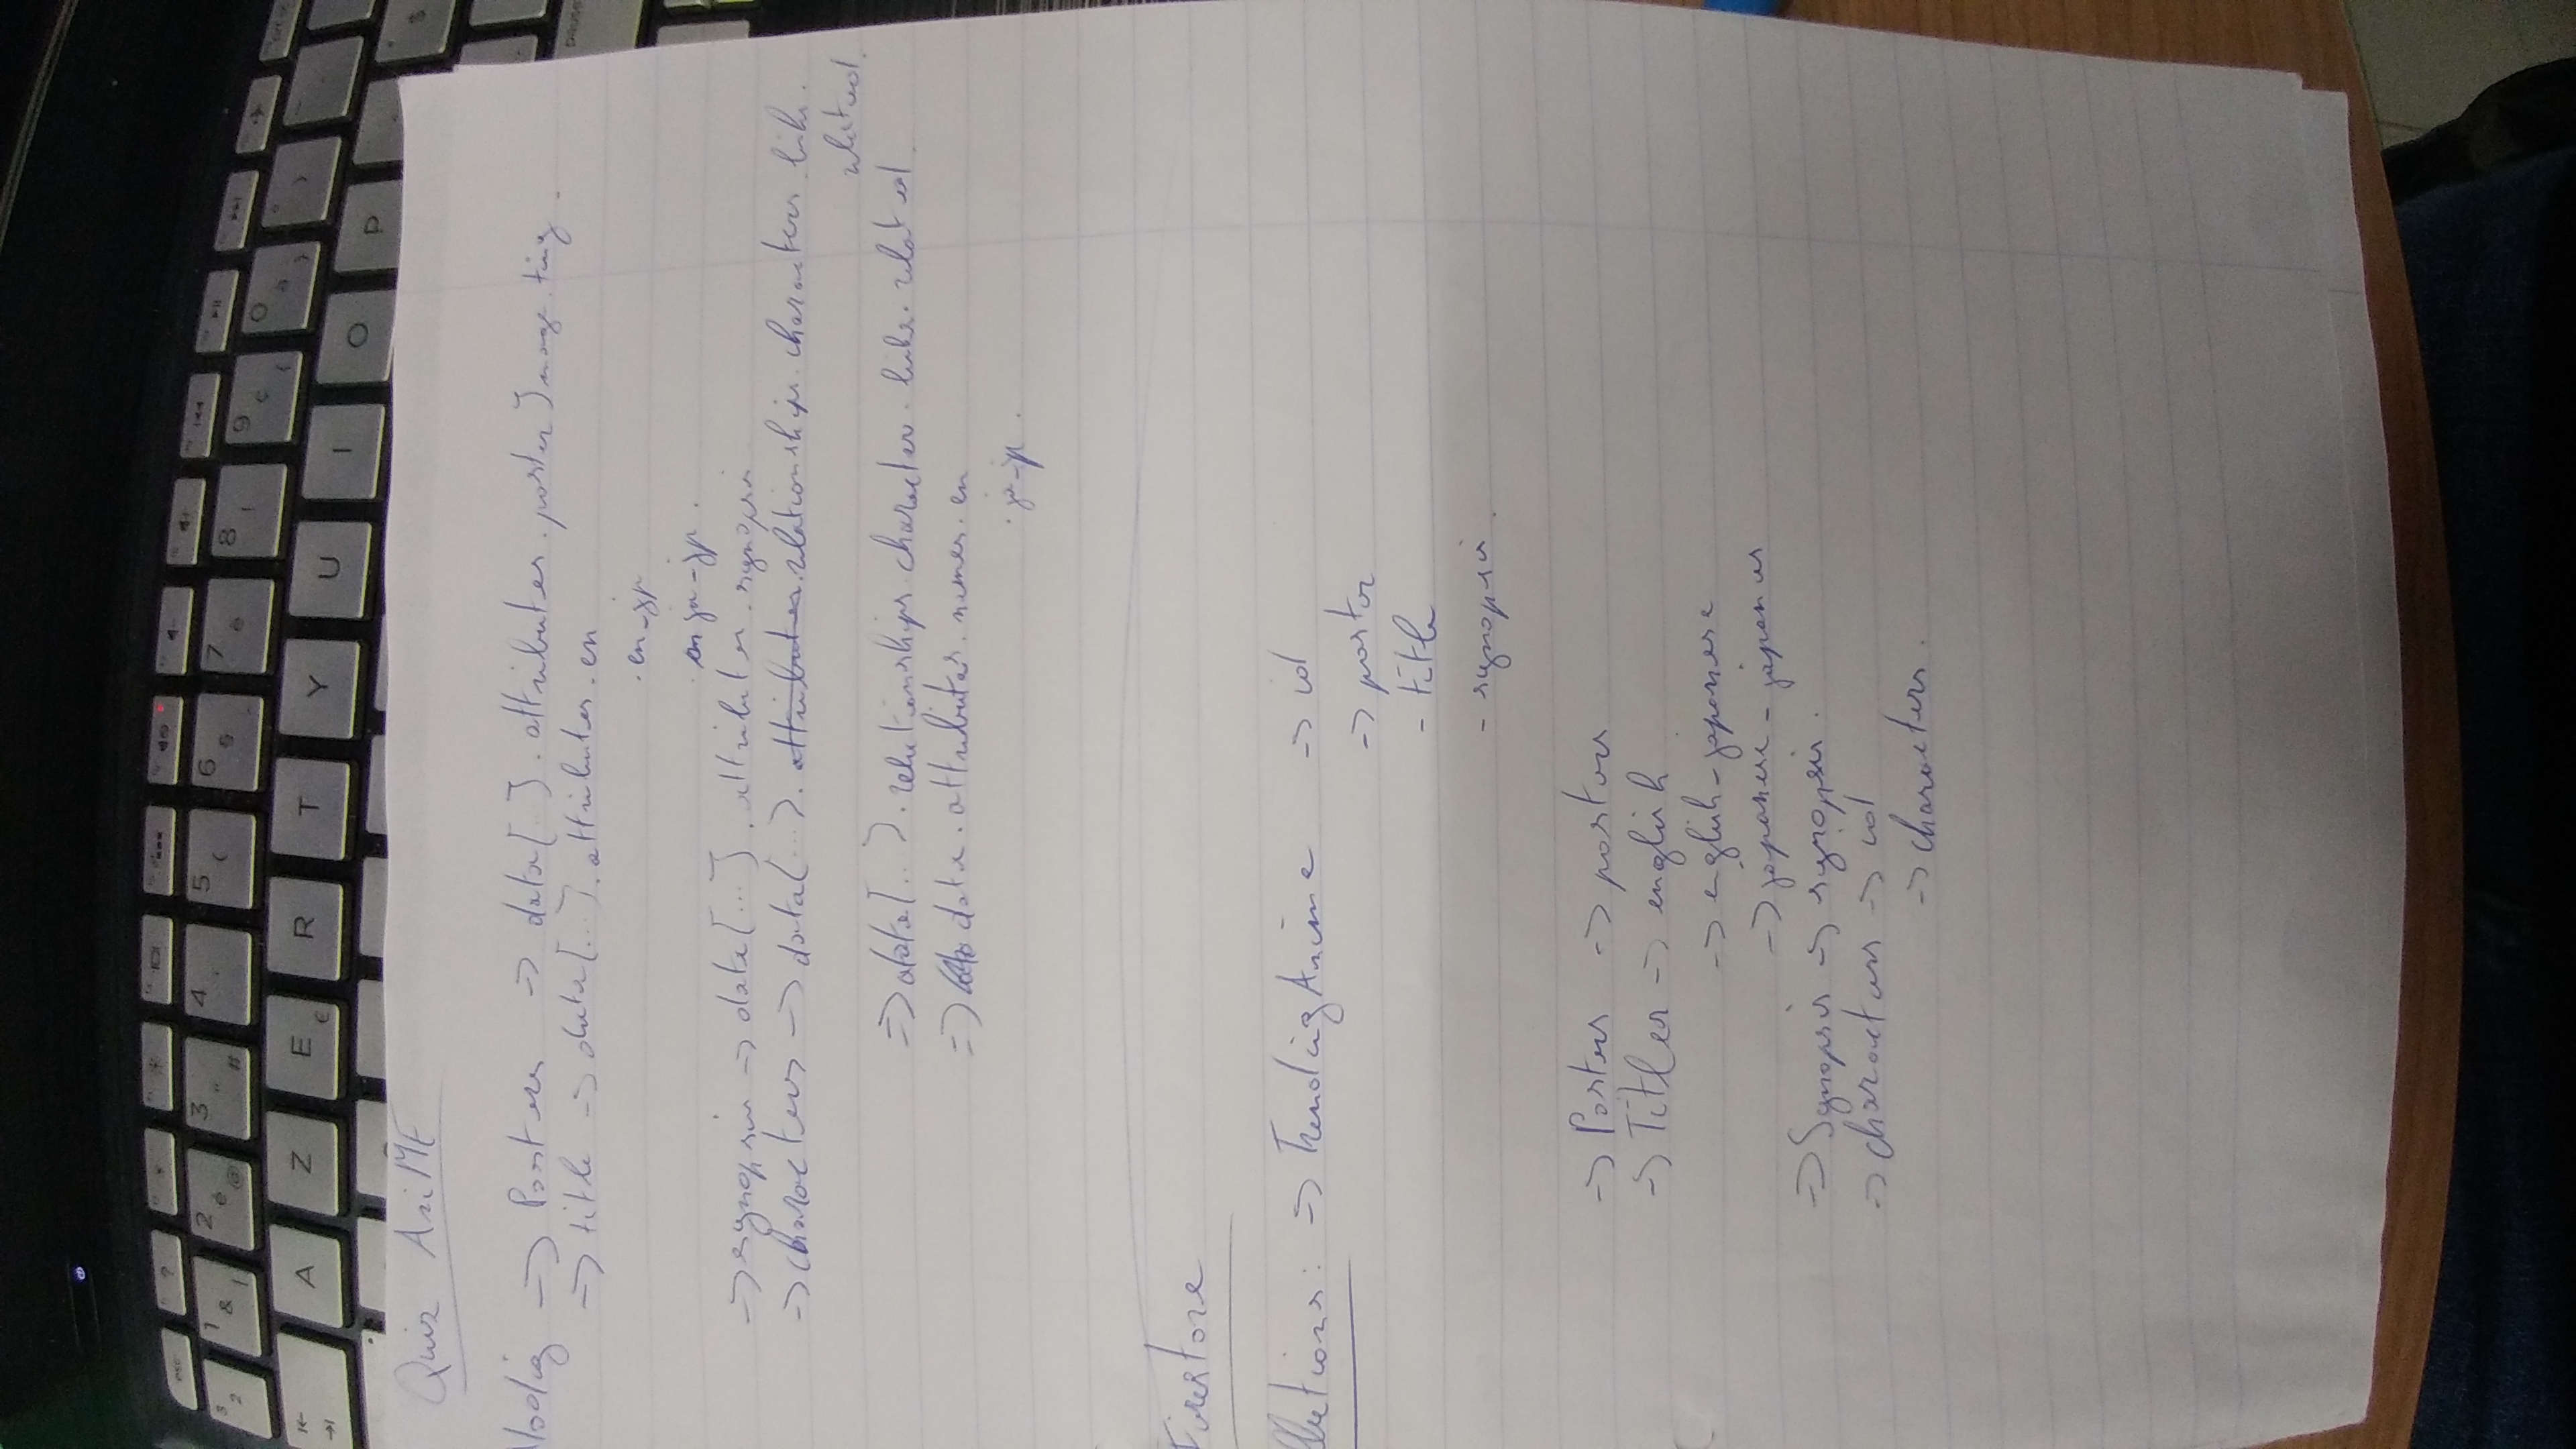 esc ?
3 2 1 & | 2 é @ 3 " # 4 ' 5 ( 6 § 7 è 8 ! 9 ç { 0 à } ° )
A Z E € R T Y U I O P $
pause
Quiz AniME
Nodig -> Posters -> data[ ].attributes.posterImage.tiny.
-> title -> data[...].attributes.en
.en_jp
ja_jp.
-> synopsis -> data[...].attributes.synopsis
-> characters -> data[...].attributes.relationships.characters.links.
related.
=> data[...].relationships.character.links.related.
=> data.attributes.names.en
.ja_jp.
Firestore
llections: -> TrendingAnime -> id
-> poster
- title
- synopsis.
-> Posters -> posters
-> Titles -> english
-> english-japanese
-> japanese-japanes
=> Synopsis -> synopsis.
-> characters -> id
-> characters.